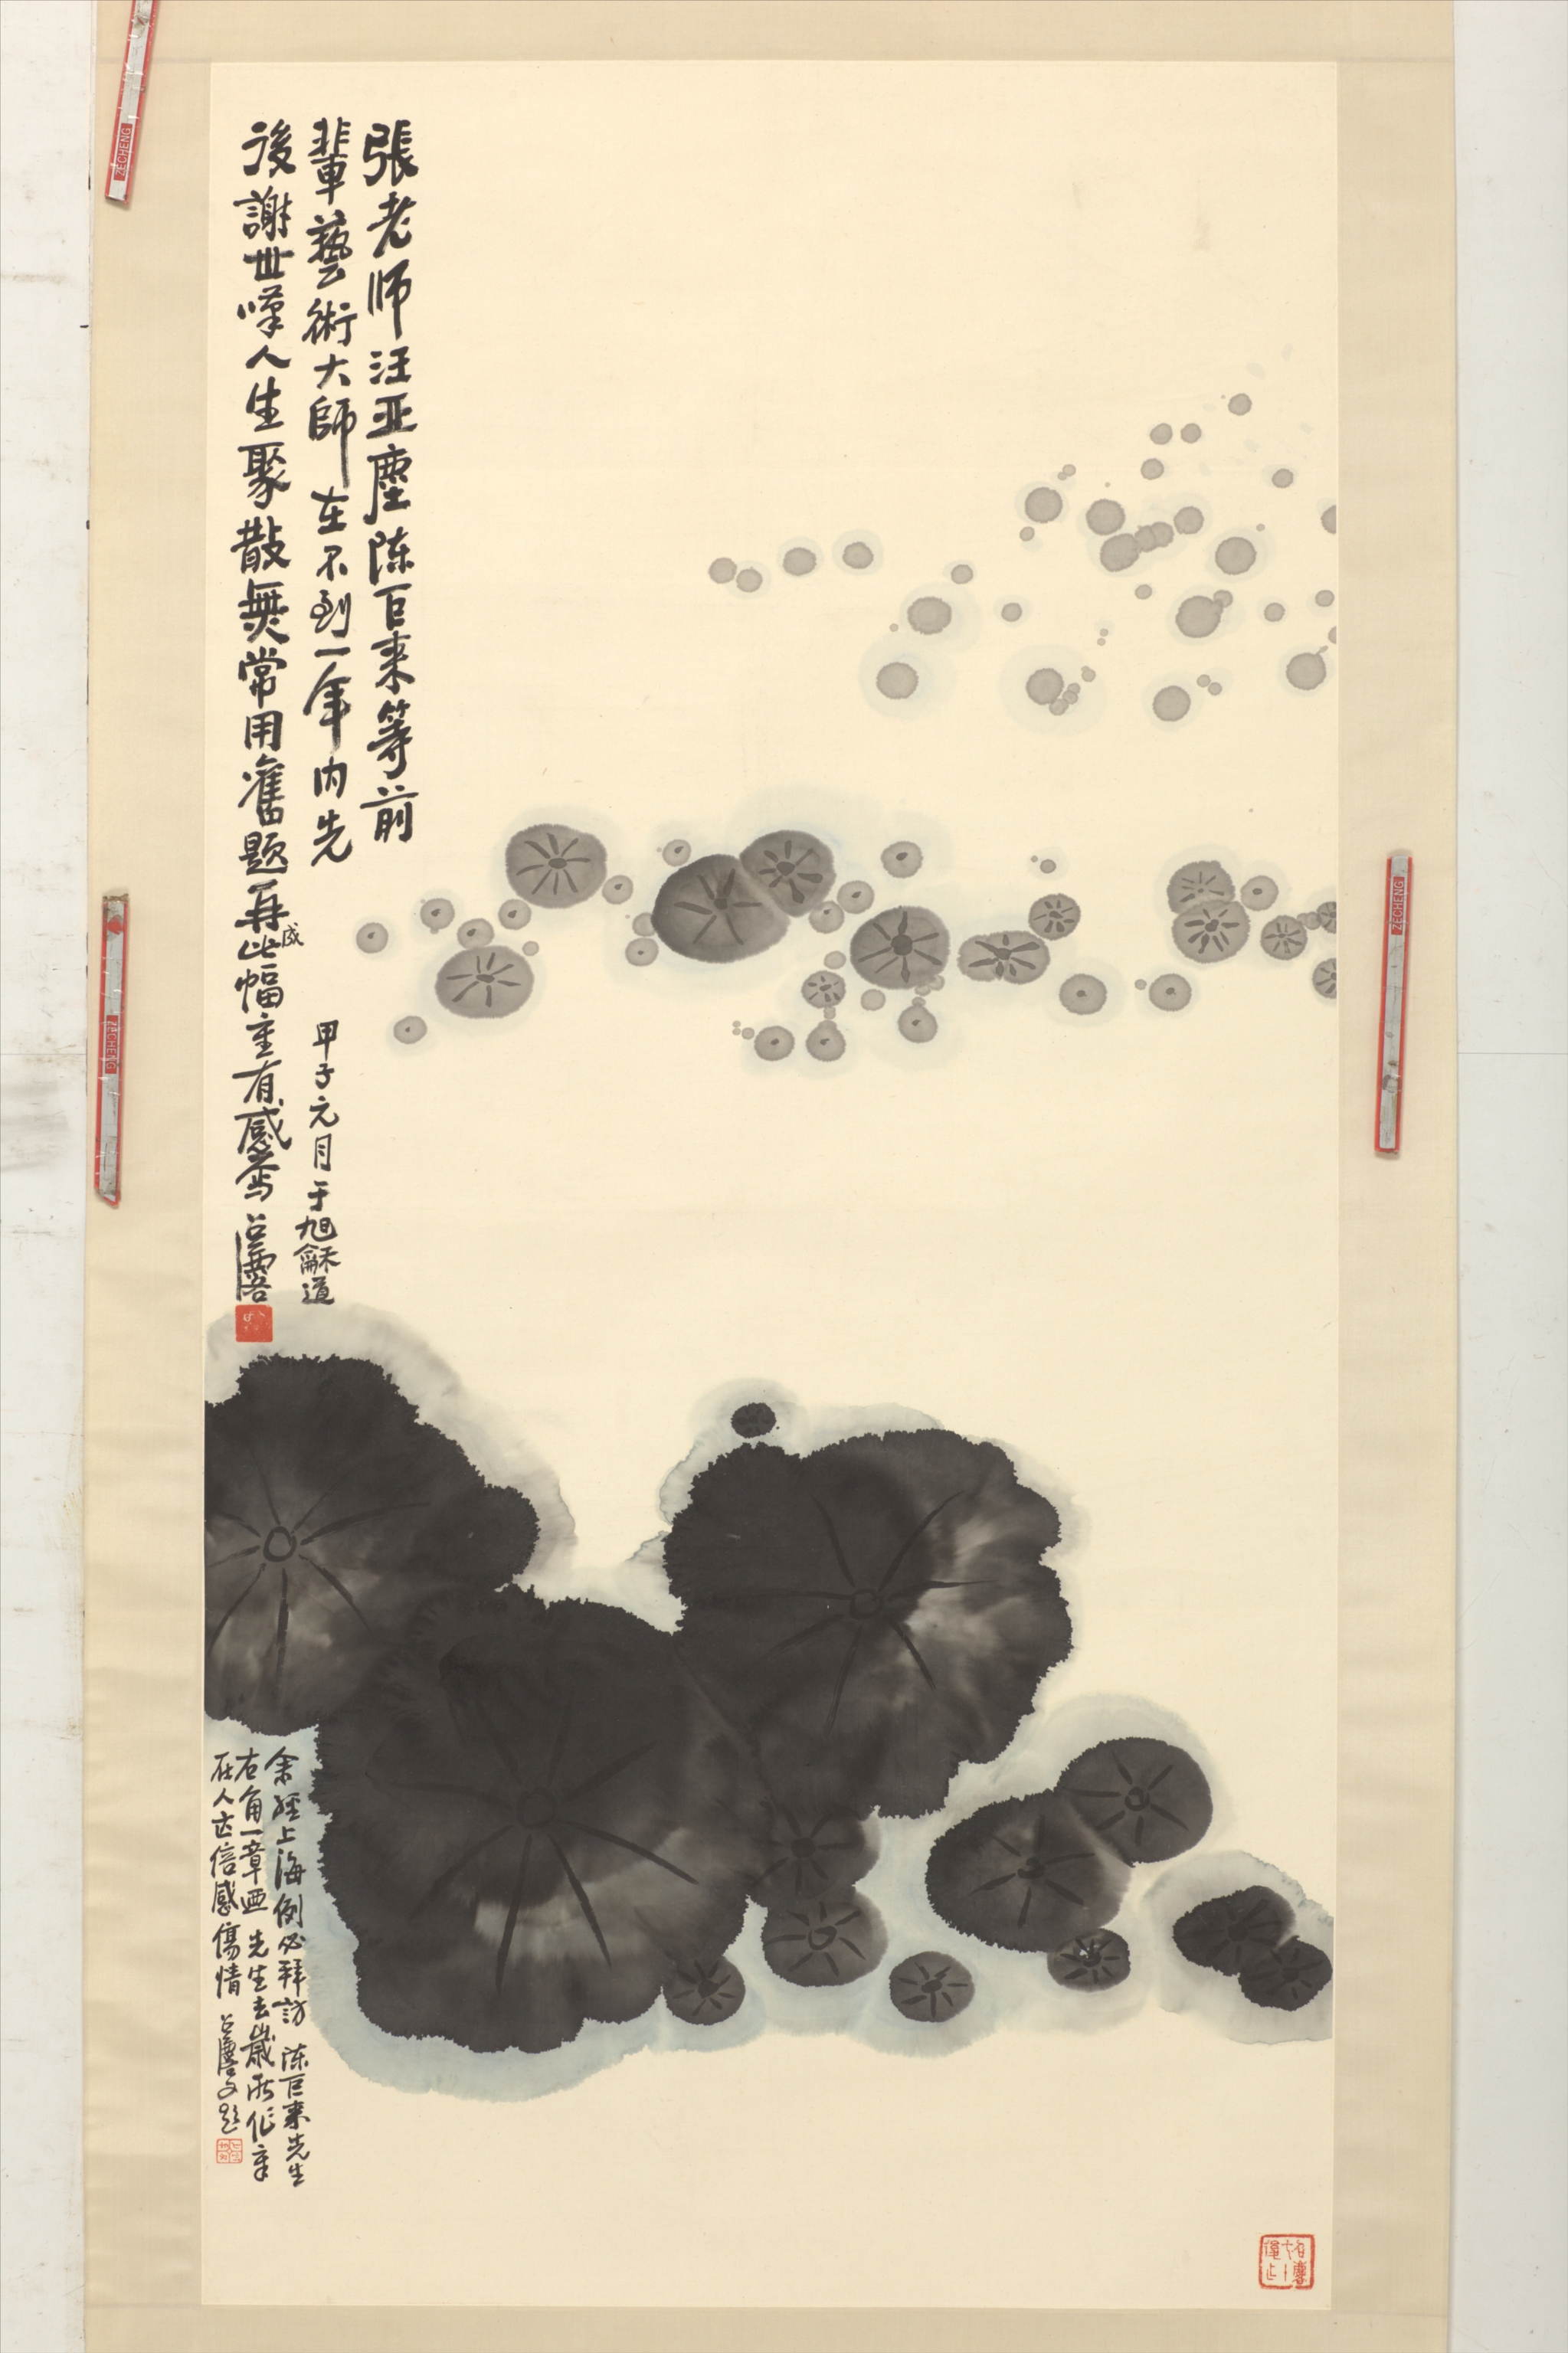 張老师汪亚塵陈巨来等前
輩藝術大師在不到一年内先
後謝世嘆人生聚散無常用舊題再成此幅有感焉
甲子元月于旭龢道
余經上海例必拜訪陈巨来先生
右角一章迺先生去歲所作章
在人亡倍感傷情又题
ZECHENG
ZECHENG
ZECHENG